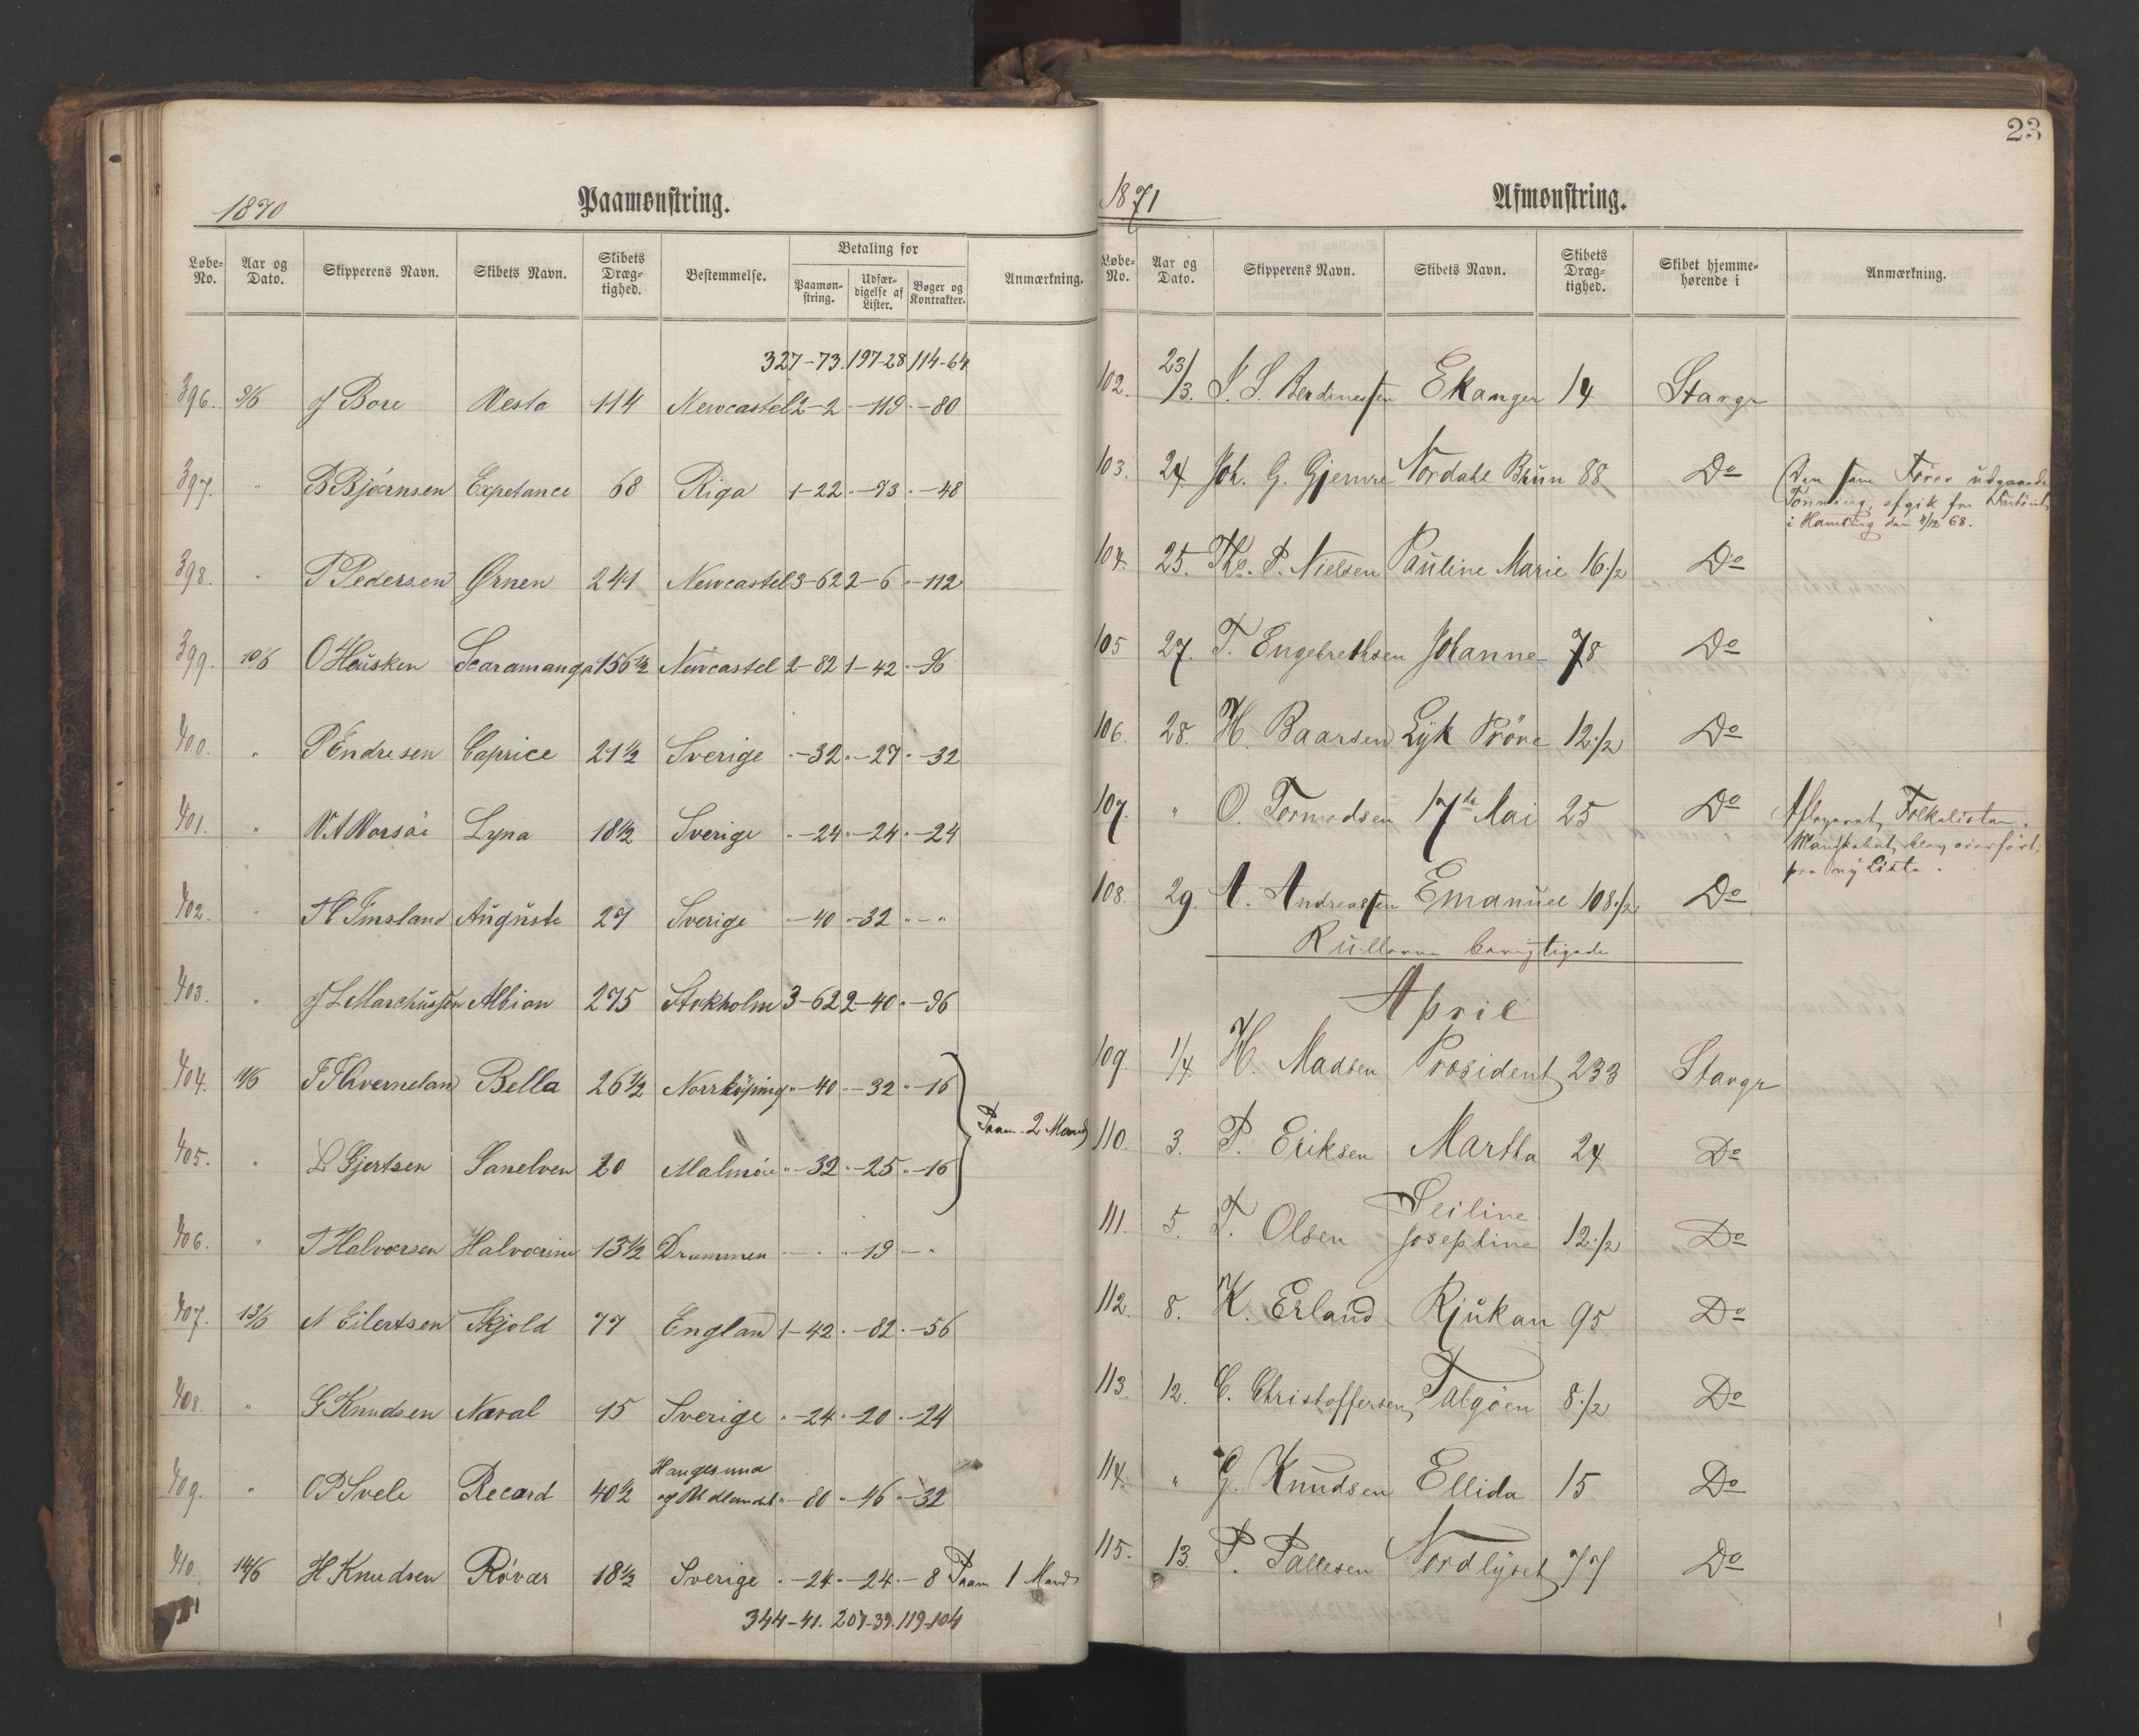 1870
Paamønstring.
Løbe-No. Aar og Dato. Skipperens Navn. Skibets Navn. Skibets Dræg-tighed. Bestemmelse. Betaling for Paamøn-string. Udfær-digelse af Lister. Bøger og Kontrakter. Anmærkning.
327-73. 197-28 114-64
396. 9/6 J Bore Vesta 114 Newcastel 2-2 "-119 "-80
397. " B Bjørnsen Expetance 68 Riga 1-22 "-73 "-48
398. " P Pedersen Ørnen 241 Newcastel 3-62 2-6 "-112
399. 10/6 O Housken Scaramanga 156 1/2 Newcastel 2-82 1-42 "-96
400. " P Endresen Caprice 21 1/2 Sverige "-32 "-27 "-32
401. " Lyna 18 1/2 Sverige "-24 "-24 "-24
402. " Imsland Auguste 27 Sverige "-40 "-32 "-"
403. " J L Marchussen Albion 275 Stokholm 3-62 2-40 "-96
404. 11/6 T Thverneland Bella 26 1/2 Norrköping "-40 "-32 "-16
Paam. 2 Mand
405. " L Gjertsen Sanelven 20 Malmöe "-32 "-25 "-16
406. " T Halvorsen Halvorine 13 1/2 Drammen "-" "-19 "-"
407. 13/6 N Eilertsen Skjold 77 England 1-42 "-82 "-56
408. " G Knudsen Naval 15 Sverige "-24 "-20 "-24
409. " O P Svele Record 40 1/2 Haugesund og Udlandet "-80 "-46 "-32
410. 14/6 H Knudsen Röver 18 1/2 Sverige "-24 "-24 "-8 Paam 1 Mand
344-41. 207-39. 119-104
23
1871
Afmønstring.
Løbe-No. Aar og Dato. Skipperens Navn. Skibets Navn. Skibets Dræg-tighed. Skibet hjemme-hørende i Anmærkning.
102. 23/3. S. S. Berdinessen Ekanger 14 Stavgr
103. 24 Joh. G. Gjemre Nordahl Brun 88 Do Den som Fører udgaaende
Tönning, afgik fra Fartöiet
i Hamburg den 4/12 68.
104. 25. Ths. P. Nielsen Pauline Marie 16 1/2 Do
105 27. T. Engebrethsen Johanne 78 Do
106. 28. H. Baarsen Lyk Pröve 12 1/2 Do
107. " O. Tormodsen 17de Mai 25 Do Afleveret Folkelisten.
Mandskabet blev overfört
paa ny Liste.
108. 29. A. Andreassen Emanuel 108 1/2 Do
Rullerne berigtigede
April
109. 1/4 H. Madsen President 233 Stavgr
110. 3. P. Eriksen Martha 24 Do
111. 5. T. Olsen Seiline Josephine 12 1/2 Do
112. 8. K. Erland Rjukan 95 Do
113. 12. C. Christoffersen Talgöen 8 1/2 Do
114. " G. Knudsen Ellida 15 Do
115. 13. P. Pallesen Nordlyset 77 Do